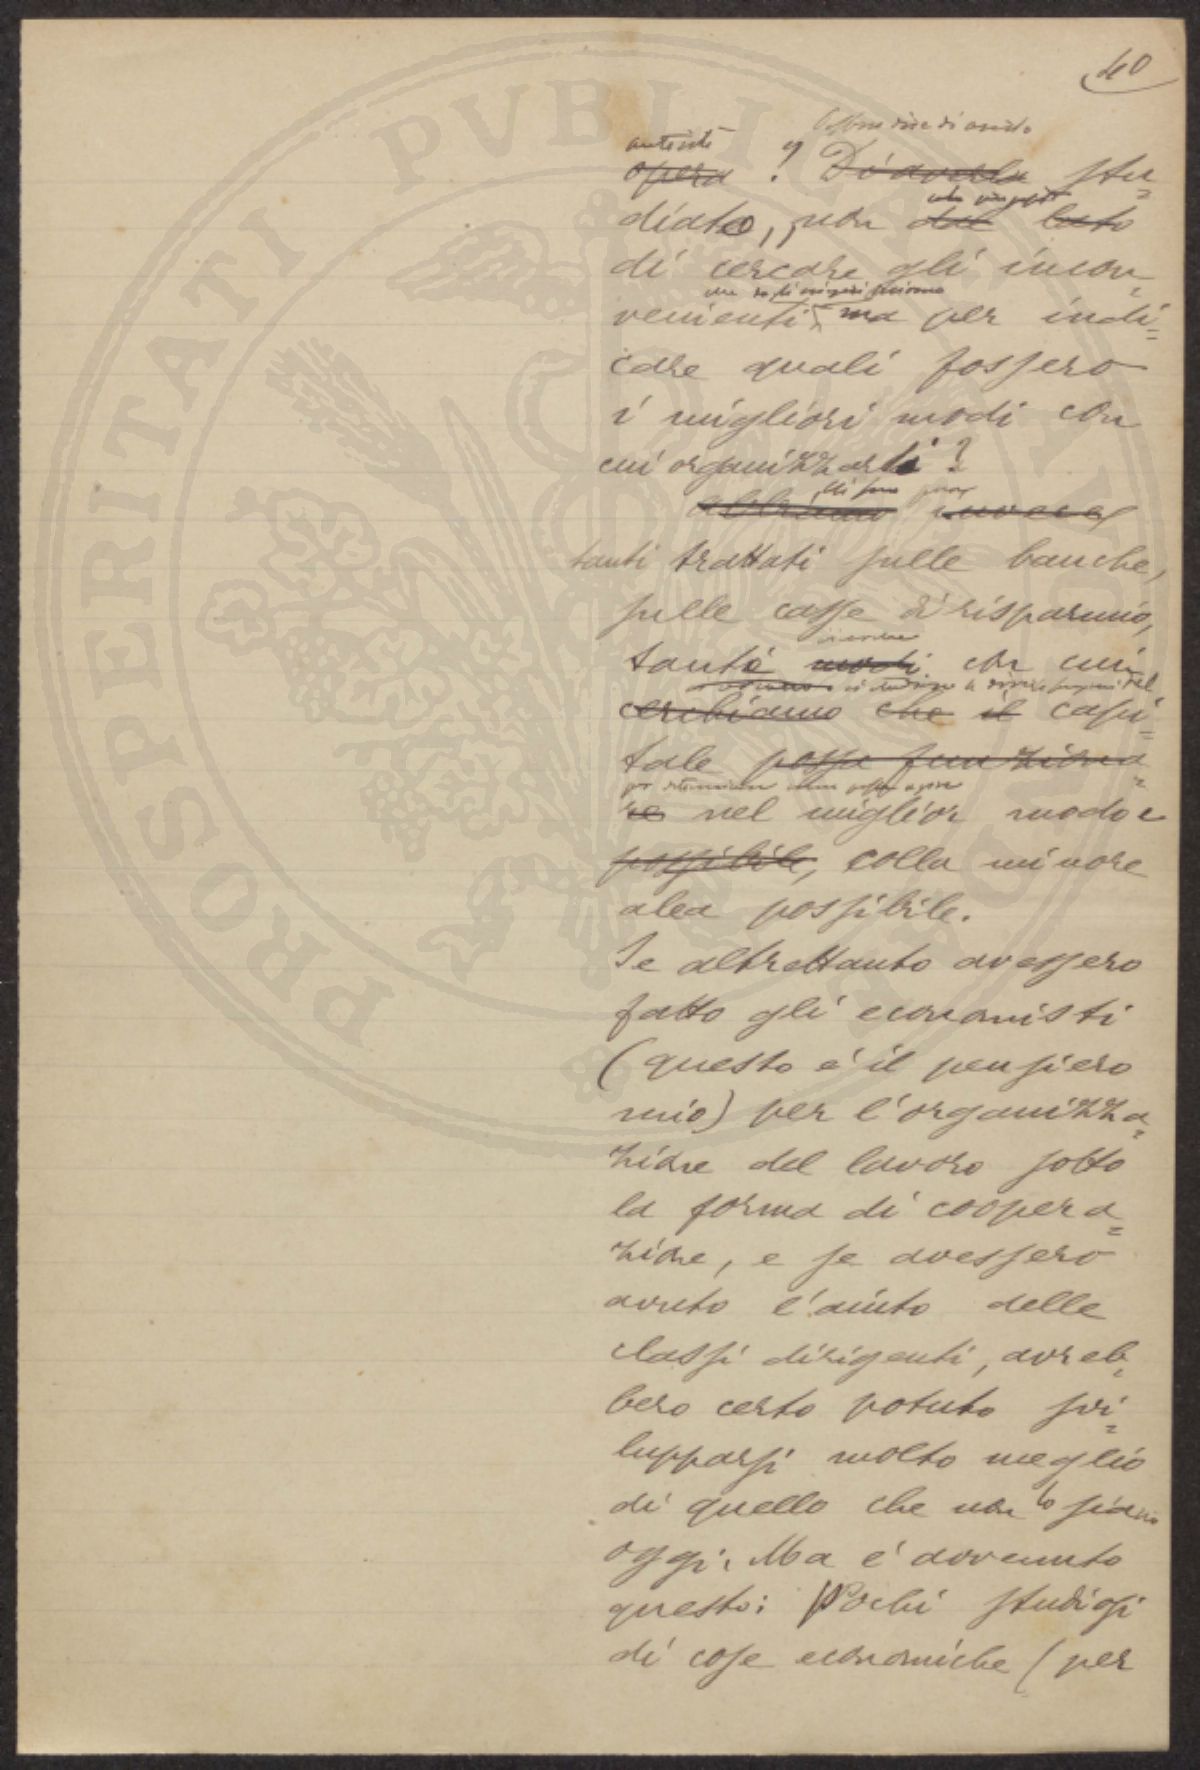 40
opera ? D'averla stu=
diato, non dal lato
di cercare gli incon=
venienti, ma per indi=
care quali fossero
i migliori modi con
cui organizzarli ?
abbiamo invece
tanti trattati sulle banche,
sulle casse di risparmio,
tanti modi con cui
cerchiamo che il capi=
tale possa funziona=
re nel miglior modo e
possibile, colla minore
alea possibile.
Se altrettanto avessero
fatto gli economisti
(questo è il pensiero
mio) per l'organizza=
zione del lavoro sotto
la forma di coopera=
zione, e se avessero
avuto l'aiuto delle
classi dirigenti, avreb=
bero certo potuto svi=
lupparsi molto meglio
di quello che non lo siano
oggi. Ma è avvenuto
questo: Pochi studiosi
di cose economiche (per
PROSPERITATI PVBLICAE